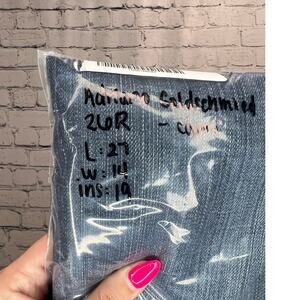 Adriano Goldschmied
26R -
L: 27
W: 14
ins: 19